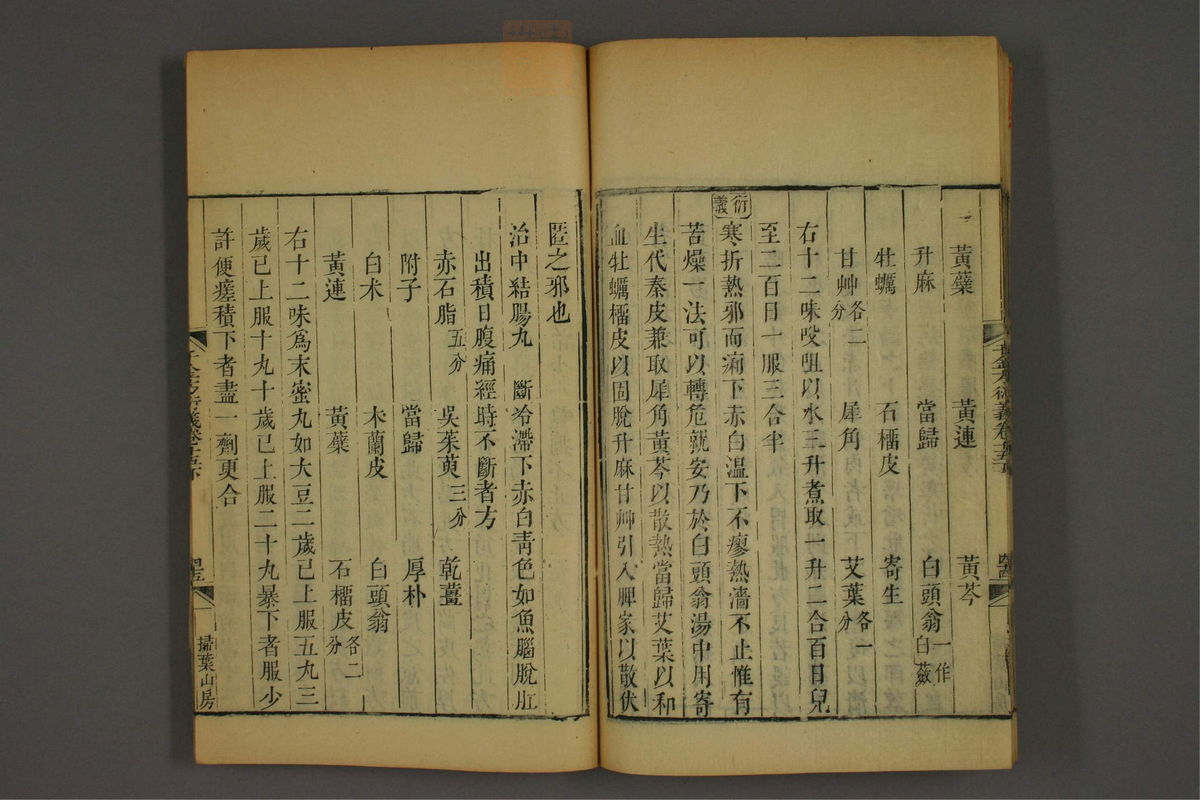 黃蘗 黃連 黃芩
升麻 當歸 白頭翁一作白蘞
牡蠣 石橊皮 寄生
甘艸各二分 犀角 艾葉各一分
右十二味㕮咀以水三升煮取一升二合百日兒
至二百日一服三合半
衍義
寒折熱邪而痢下赤白溫下不廖熱濇不止惟有
苦燥一法可以轉危就安乃於白頭翁湯中用寄
生代秦皮兼取犀角黃芩以散熱當歸艾葉以和
血牡蠣橊皮以固脫升麻甘艸引入脾家以散伏
匿之邪也
治中結腸丸 斷冷滯下赤白青色如魚腦脫肛
出積日腹痛經時不斷者方
赤石脂五分 吳茱萸三分 乾薑
附子 當歸 厚朴
白朮 木蘭皮 白頭翁
黃連 黃蘗 石橊皮各二分
右十二味爲末蜜丸如大豆二歲已上服五丸三
歲已上服十丸十歲已上服二十丸暴下者服少
許便瘥積下者盡一劑更合
掃葉山房